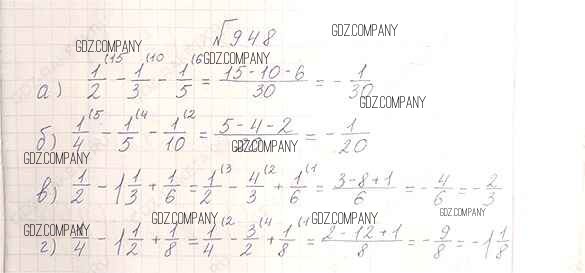 √948
GDZ.COMPANY
GDZ.COMPANY
GDZ.COMPANY
а) 1/2 (15 - 1/3 (10 - 1/5 (6 = 15-10-6/30 = - 1/30
GDZ.COMPANY
б) 1/4 (5 - 1/5 (4 - 1/10 (2 = 5-4-2/20 = - 1/20
GDZ.COMPANY
GDZ.COMPANY
в) 1/2 - 1 1/3 + 1/6 = 1/2 (3 - 4/3 (2 + 1/6 (1 = 3-8+1/6 = - 4/6 = - 2/3
GDZ.COMPANY
GDZ.COMPANY
GDZ.COMPANY
GDZ.COMPANY
г) 1/4 - 1 1/2 + 1/8 = 1/4 (2 - 3/2 (4 + 1/8 (1 = 2-12+1/8 = - 9/8 = - 1 1/8